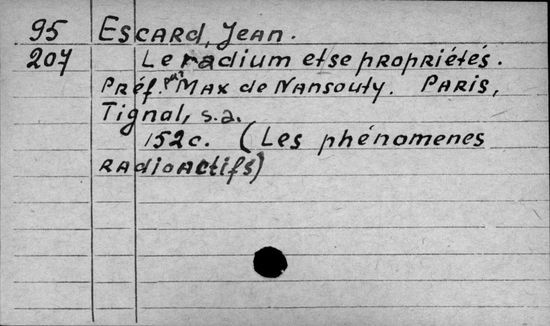 95 Escard, Jean.
207 Le radium et se propriétés.
Préf. par Max de Nansouty. Paris,
Tignal, s.a.
152c. (Les phénomenes
radioactifs)